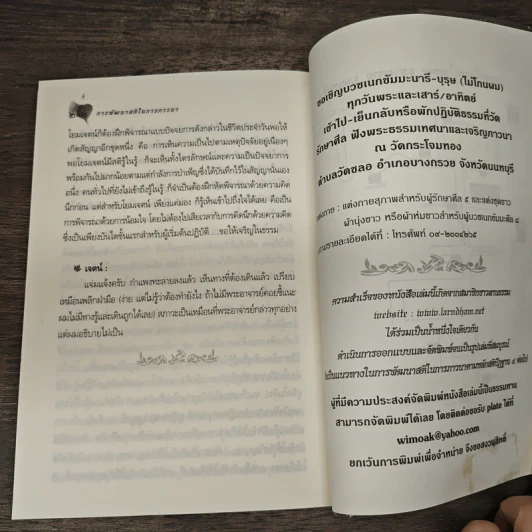 การพัฒนาสติในการภาวนา
โยมเจตน์ก็ต้องฝึกพิจารณาแบบปัจจัยการดังกล่าวในชีวิตประจำวันพอให้
เกิดสัญญาอีกชุดหนึ่ง คือ การเห็นความเป็นไปตามเหตุปัจจัยอยู่เนืองๆ
พอโยมเจตน์มีสติรู้ในรู้ ก็จะเห็นทั้งไตรลักษณ์และความเป็นปัจจยาการ
พร้อมกันไปมากน้อยตามแต่กำลังการบำเพ็ญซึ่งได้บันทึกไว้ในสัญญานั่นเอง
อนึ่ง คนทั่วไปที่ยังไม่เข้าถึงรู้ในรู้ ก็จำเป็นต้องฝึกหัดพิจารณาด้วยความคิด
นึกก่อน แต่สำหรับโยมเจตน์ เพียงแค่มอง ก็รู้เห็นเข้าไปถึงใจได้เลย คือเป็น
การพิจารณาด้วยการน้อมใจ โดยไม่ต้องไปเสียเวลากับการคิดนึกด้วยความคิด
ซึ่งเป็นเพียงบันไดขั้นแรกสำหรับผู้เริ่มต้นปฏิบัติ.....ขอให้เจริญในธรรม
เจตน์ :
แจ่มแจ้งครับ กำแพงทะลายลงแล้ว เห็นทางที่ต้องเดินแล้ว เปรียบ
เหมือนพลิกฝ่ามือ (ง่าย แต่ไม่รู้ว่าต้องทำยังไง ถ้าไม่มีพระอาจารย์คอยชี้แนะ
ผมไม่มีทางรู้และเดินถูกได้เลย) สภาวะเป็นเหมือนที่พระอาจารย์กล่าวทุกอย่าง
แต่ผมอธิบายไม่เป็น
ขอเชิญบวชเนกขัมมะนารี-บุรุษ (ไม่โกนผม)
ทุกวันพระและเสาร์/อาทิตย์
เช้าไป-เย็นกลับหรือพักปฏิบัติธรรมที่วัด
รักษาศีล ฟังพระธรรมเทศนาและเจริญภาวนา
ณ วัดกระโจมทอง
ตำบลวัดชลอ อำเภอบางกรวย จังหวัดนนทบุรี
แต่งกาย : แต่งกายสุภาพสำหรับผู้รักษาศีล ๕ และแต่งชุดขาว
ผ้านุ่งขาว หรือผ้าห่มขาวสำหรับผู้บวชเนกขัมมะศีล ๘
รายละเอียดได้ที่ : โทรศัพท์
ความสำเร็จของหนังสือเล่มนี้เกิดจากสมาชิกชาวลานธรรม
website : www.larndham.net
ได้ร่วมเป็นน้ำหนึ่งใจเดียวกัน
ดำเนินการออกแบบและจัดพิมพ์จนเป็นรูปเล่มที่สมบูรณ์
เป็นแนวทางในการพัฒนาสติในการภาวนาตามหลักสติปัฏฐาน ๔ ต่อไป
ผู้ที่มีความประสงค์จัดพิมพ์หนังสือเล่มนี้เป็นธรรมทาน
สามารถจัดพิมพ์ได้เลย โดยติดต่อขอรับ plate ได้ที่
wimoak@yahoo.com
ยกเว้นการพิมพ์เพื่อจำหน่าย จึงขอสงวนสิทธิ์